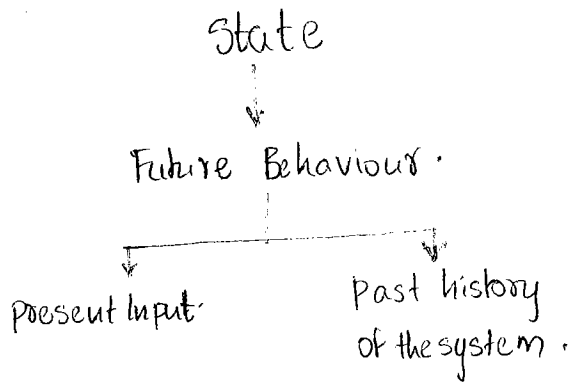 State
Future Behaviour.
present Input.
Past history
of the system.